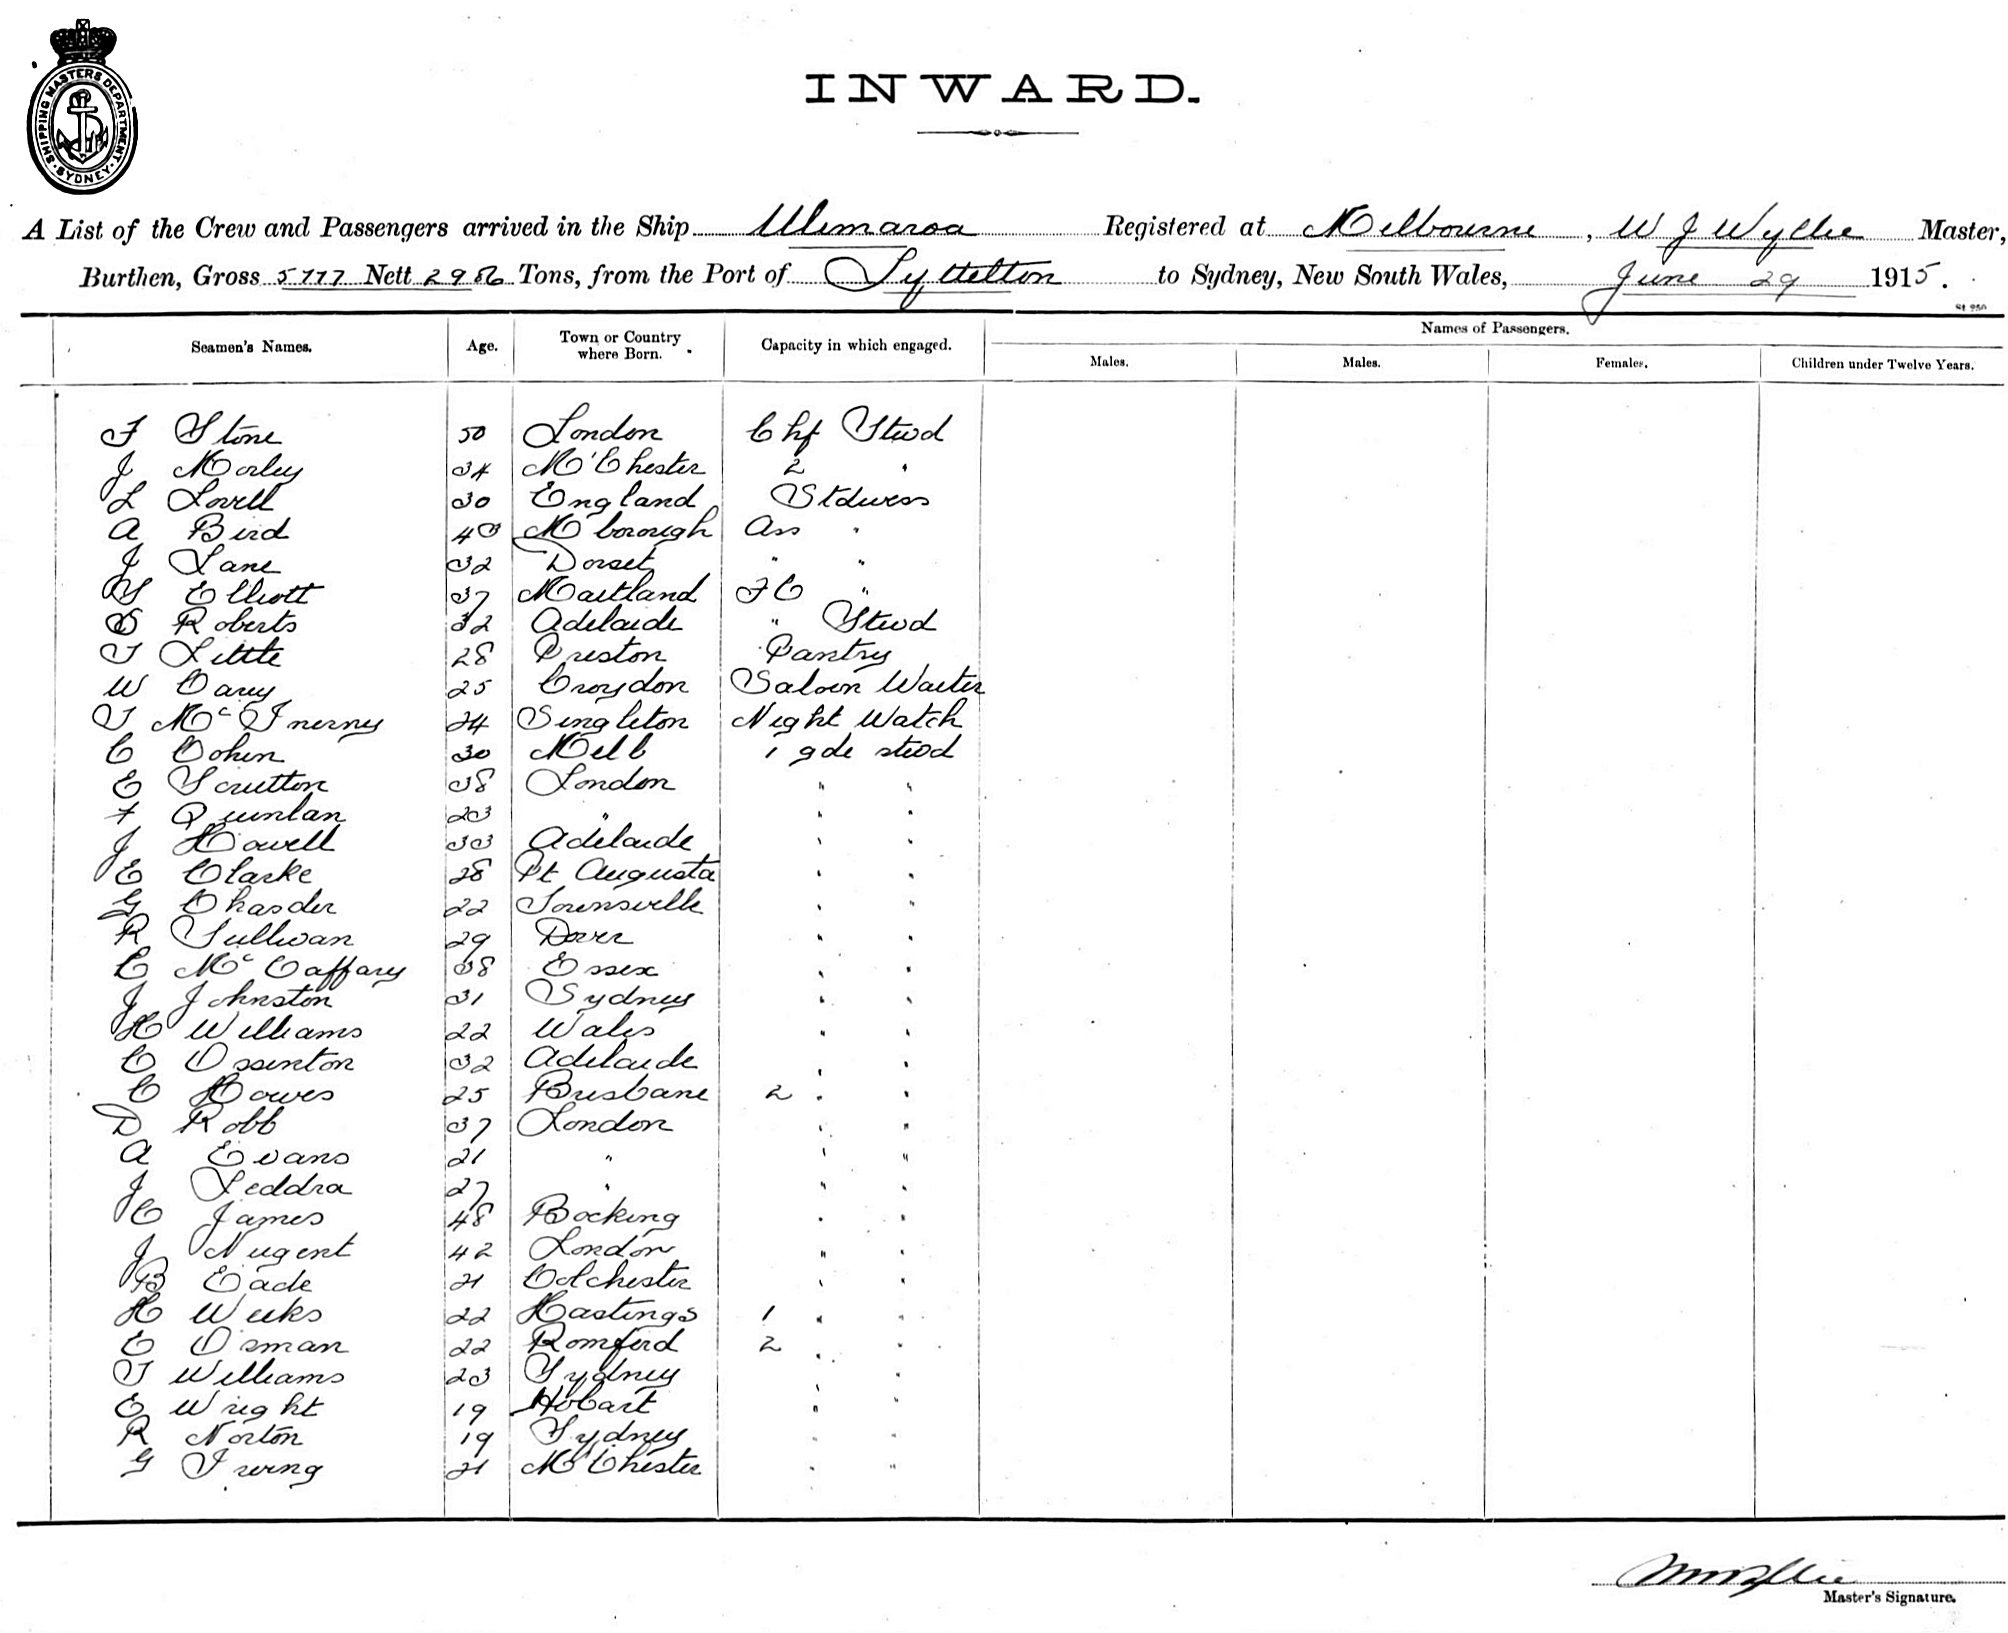 SHIPPING MASTERS DEPARTMENT. SYDNEY.
INWARD.
A List of the Crew and Passengers arrived in the Ship Ulimaroa Registered at Melbourne, W J Wyllie Master,
Burthen, Gross 5777 Nett 2986 Tons, from the Port of Lyttelton to Sydney, New South Wales, June 29 1915.
Names of Passengers.
Seamen's Names. Age. Town or Country where Born. Capacity in which engaged. Males. Males. Females. Children under Twelve Years.
F Stone 50 London Chf Stwd
J Morley 34 M'Chester 2 "
L Lovell 30 England Stdwess
A Bird 43 M'borough Ass "
J Lane 32 Dorset " "
Elliott 37 Maitland FC "
S Roberts 32 Adelaide " Stwd
T Little 28 Preston Pantry
W Carey 25 Croydon Saloon Waiter
T McInerney 24 Singleton Night Watch
C Cohen 30 Melb 1 gde stwd
E Scrutton 38 London " "
F Quinlan 23 " " "
J Howell 33 Adelaide " "
E Clarke 28 Pt Augusta " "
G Chasder 22 Townsville " "
R Sullivan 29 Dover " "
C McCaffary 38 Essex " "
J Johnston 31 Sydney " "
H Williams 22 Wales " "
C Ossinton 32 Adelaide " "
C Howes 25 Brisbane 2 " "
D Robb 37 London " "
A Evans 21 " " "
J Leddra 27 " " "
C James 48 Bocking " "
J Nugent 42 London " "
B Eade 21 Colchester " "
H Weeks 22 Hastings 1 " "
E Osman 22 Romford 2 " "
T Williams 23 Sydney " "
E Wright 19 Hobart " "
R Norton 19 Sydney " "
G Irving 21 M'Chester " "
Master's Signature.